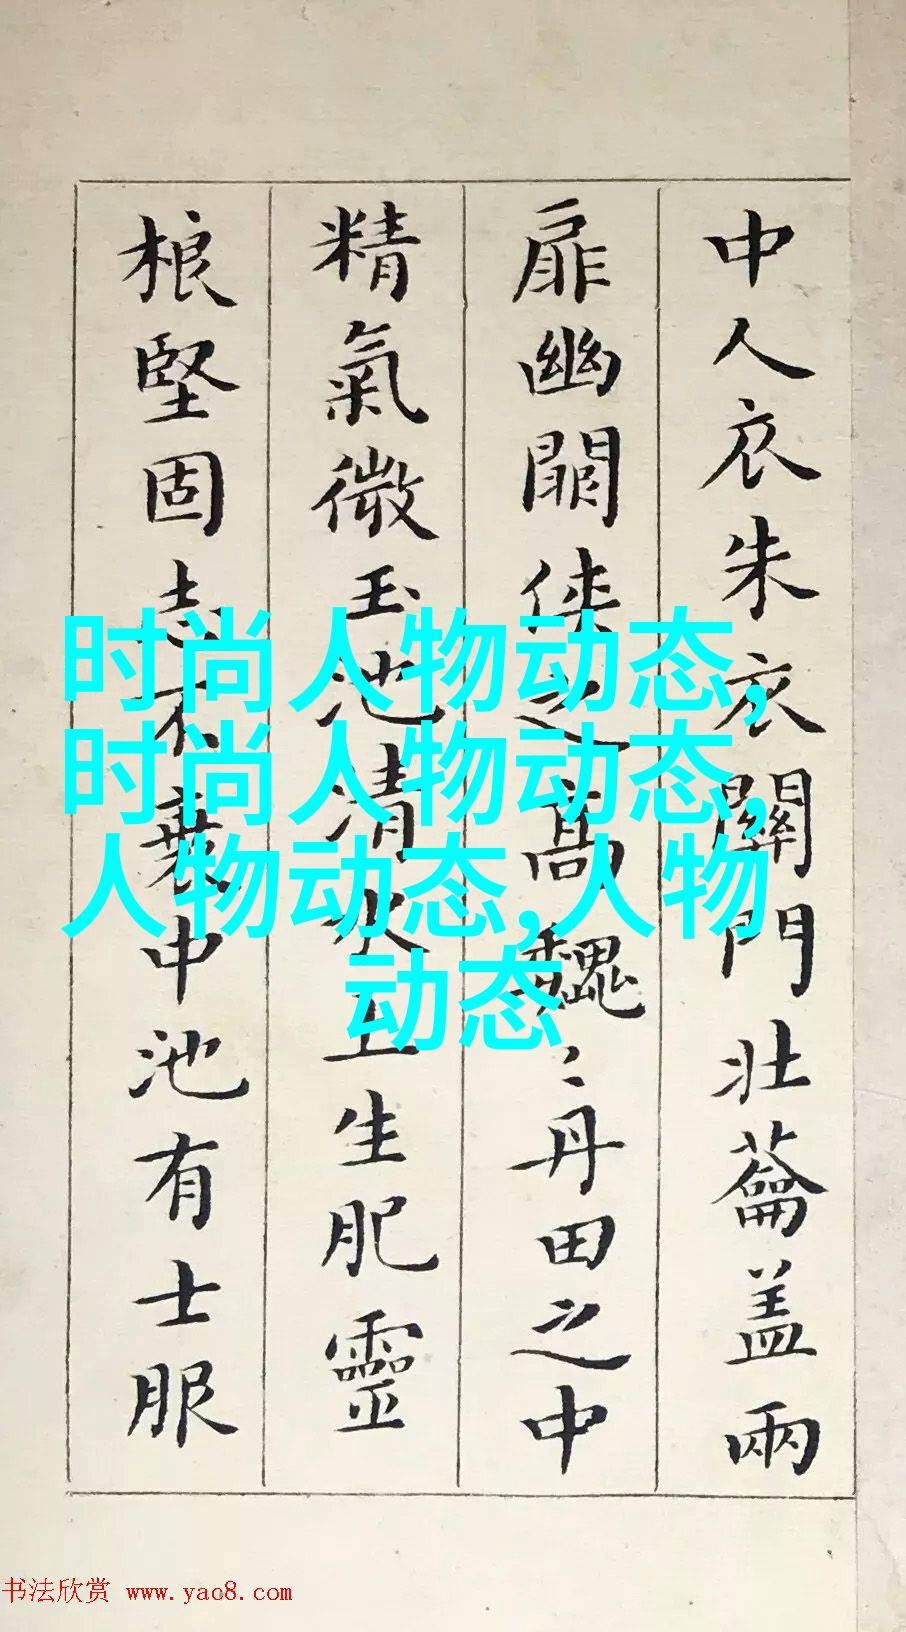 中人衣朱衣關門壯蘥盖兩
扉幽關俠之高魏〻丹田之中
精氣微玉池清水上生肥靈
根堅固志不衰中池有士服
时尚人物动态,
时尚人物动态,
人物动态,人物
动态
书法欣赏 www.yac8.com